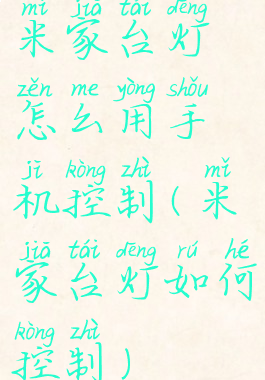 mǐ jiā tái dēng
米家台灯
zěn me yòng shǒu
怎么用手
jī kòng zhì mǐ
机控制(米
jiā tái dēng rú hé
家台灯如何
kòng zhì
控制)